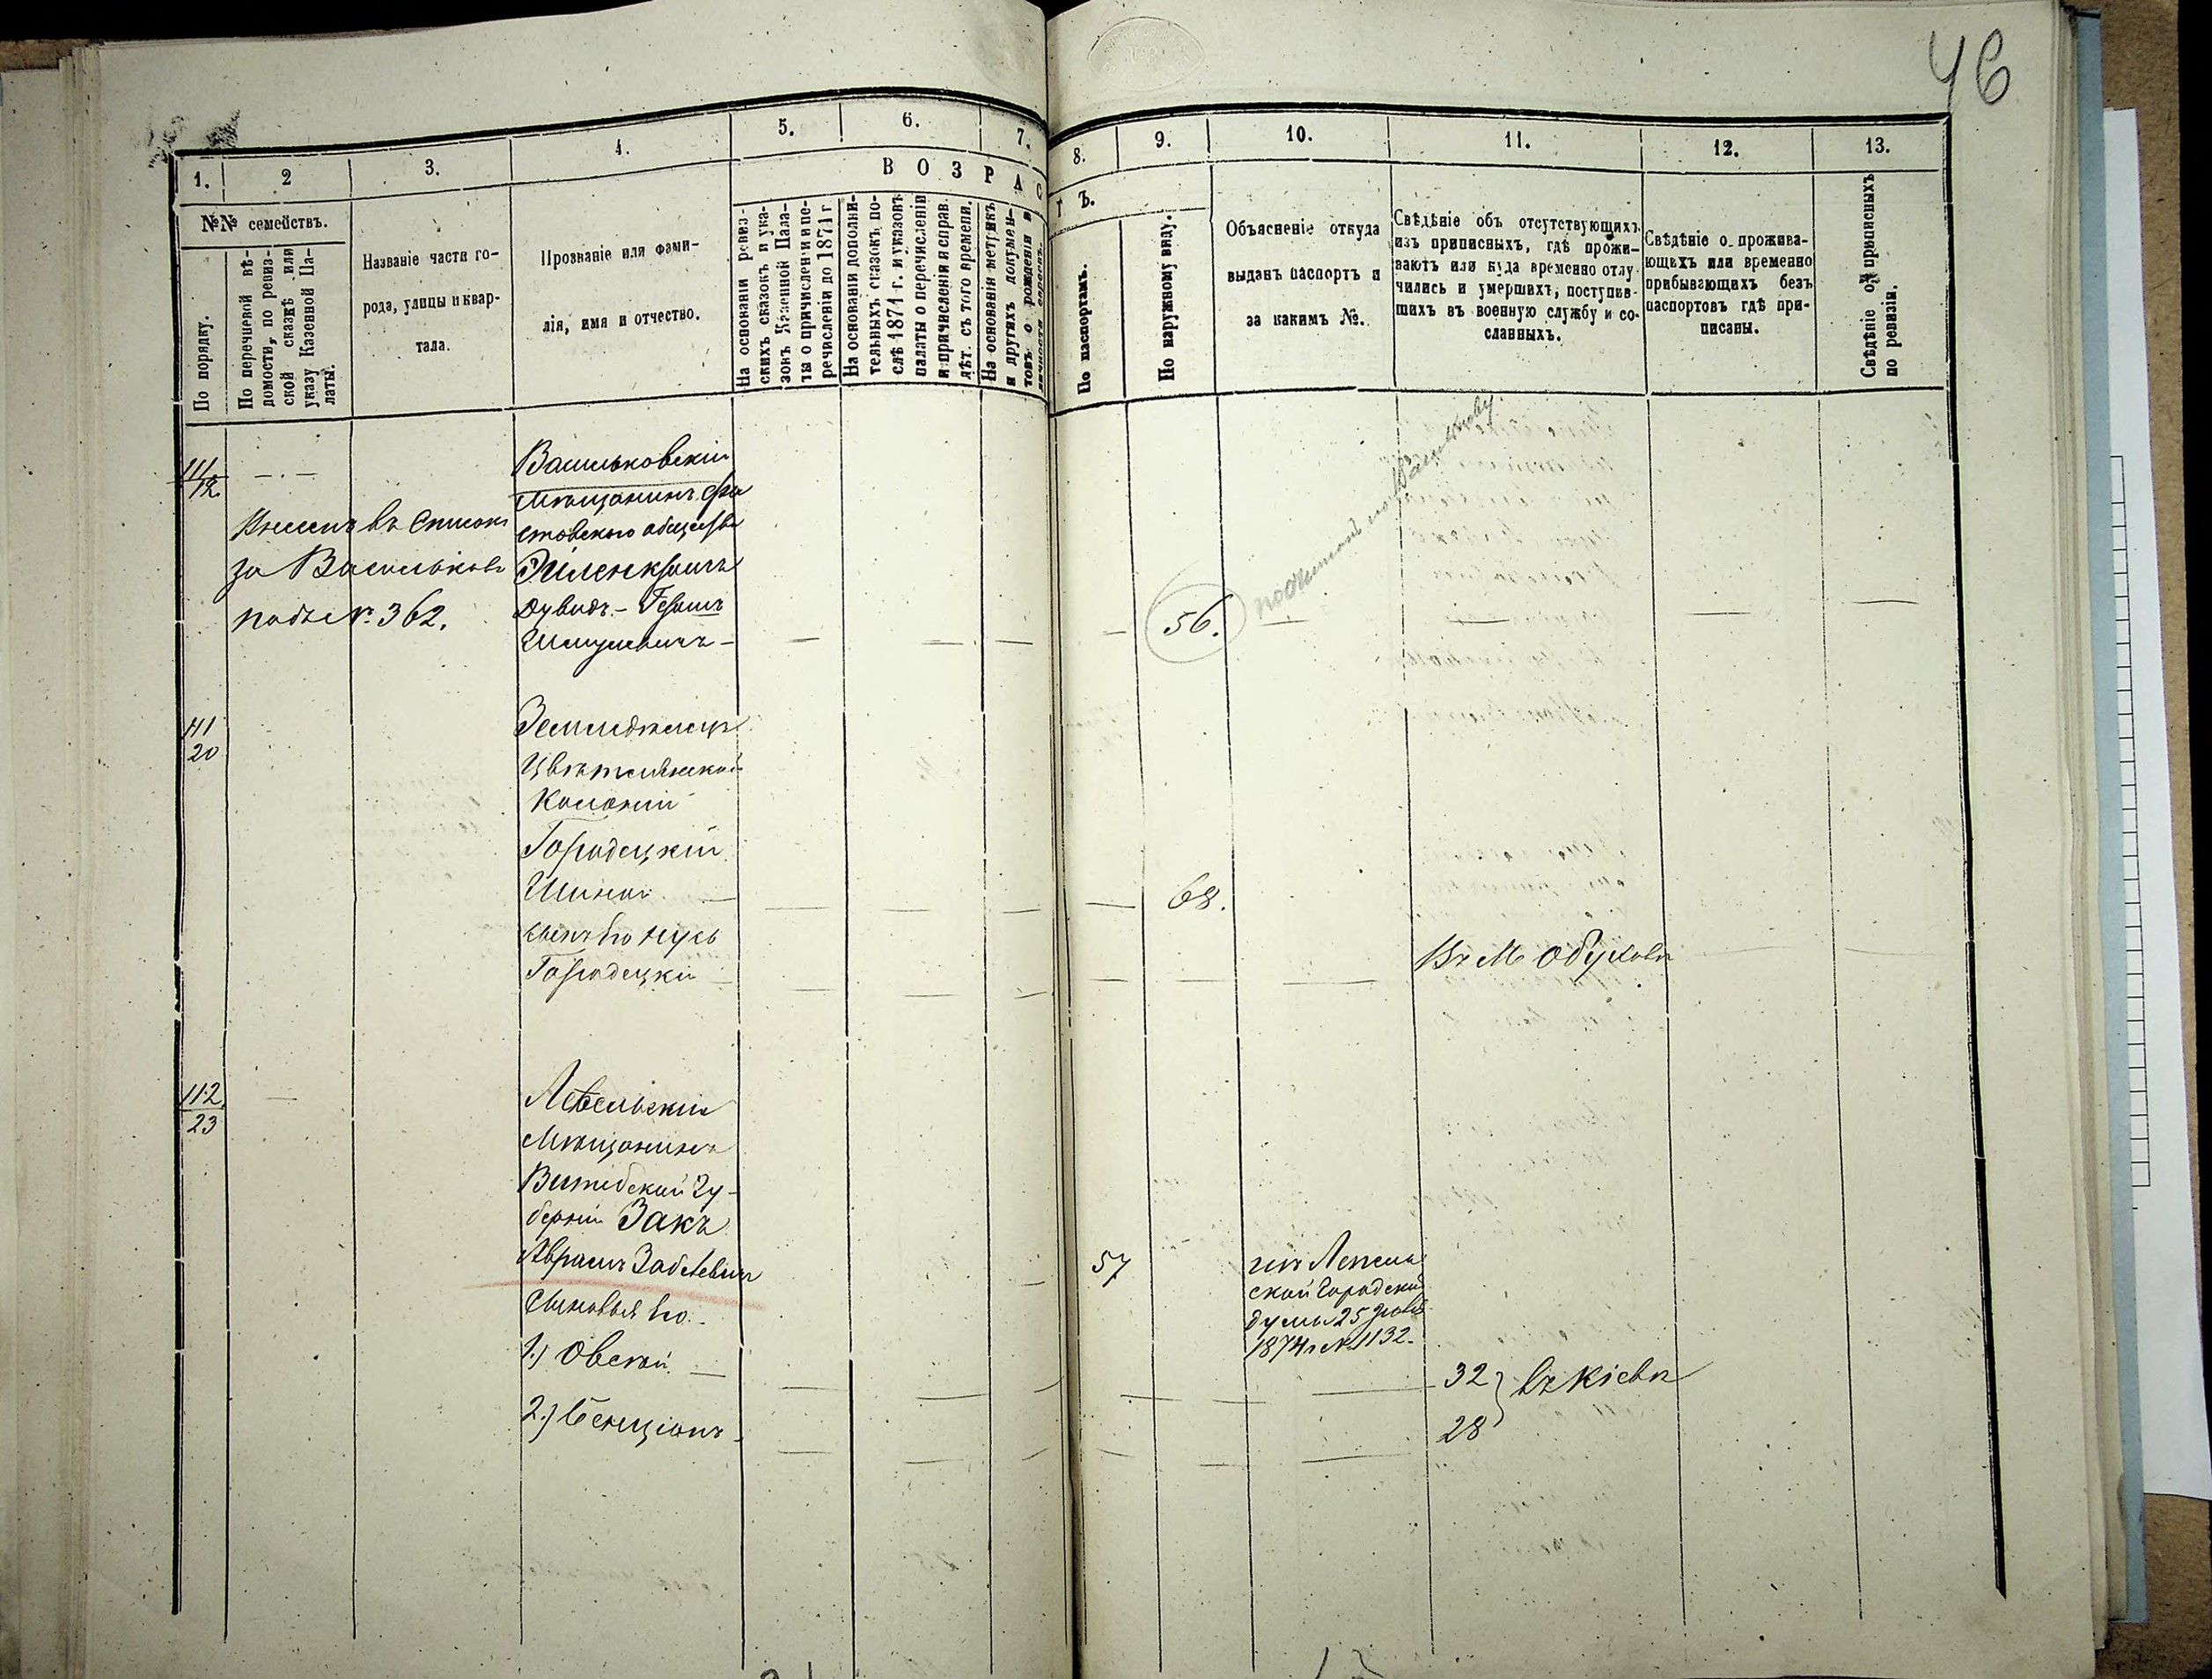 46
1.
2
3.
4.
5.
6.
7.
8.
9.
10.
11.
12.
13.
№№ семействъ.
По порядку.
По перечневой вѣ-
домости, по ревиз-
ской сказкѣ или
указу Казенной Па-
латы.
Названіе части го-
рода, улицы и квар-
тала.
Прозваніе или фами-
лія, имя и отчество.
ВОЗРАС
ТЪ.
На основаніи ревиз-
скихъ сказокъ и ука-
зовъ Казенной Пала-
ты о причисленіи и пе-
речисленіи до 1871 г
На основаніи дополни-
тельныхъ сказокъ по-
слѣ 1871 г. и указовъ
палаты о перечисленіи
и причисленія и справ.
лѣт. съ того времени.
На основаніи метрикъ
и другихъ докумен-
товъ о рожденіи и
По паспортамъ.
По наружному виду.
Объясненіе откуда
выданъ паспортъ и
за какимъ №.
Свѣдѣніе объ отсутствующихъ
изъ приписныхъ, гдѣ прожи-
ваютъ или куда временно отлу
чились и умершихъ, поступив-
шихъ въ военную службу и со-
сланныхъ.
Свѣдѣніе о прожива-
ющихъ или временно
прибывающихъ безъ
паспортовъ гдѣ при-
писаны.
Свѣдѣніе о приписныхъ
по ревизіи.
Васильковскій
мѣщанинъ Фа
стовскаго общества
Дувидъ-Гершъ
Шмулевичъ
въ списокъ
за Васильковъ
подъ № 362.
56.
41
20
Земледѣлецъ
Колоніи
Городецкій
68.
сынъ его Нусь
Городецкій
Въ М Обуховѣ
112
23
Лепельскій
Мѣщанинъ
Витебской гу-
берніи Закъ
Аврамъ
Сыновья его
1.) Овсѣй
2.) Бенціонъ
57
изъ Лепель
ской городской
думы 25
1874 г № 1132.
32
28
въ Кіевѣ